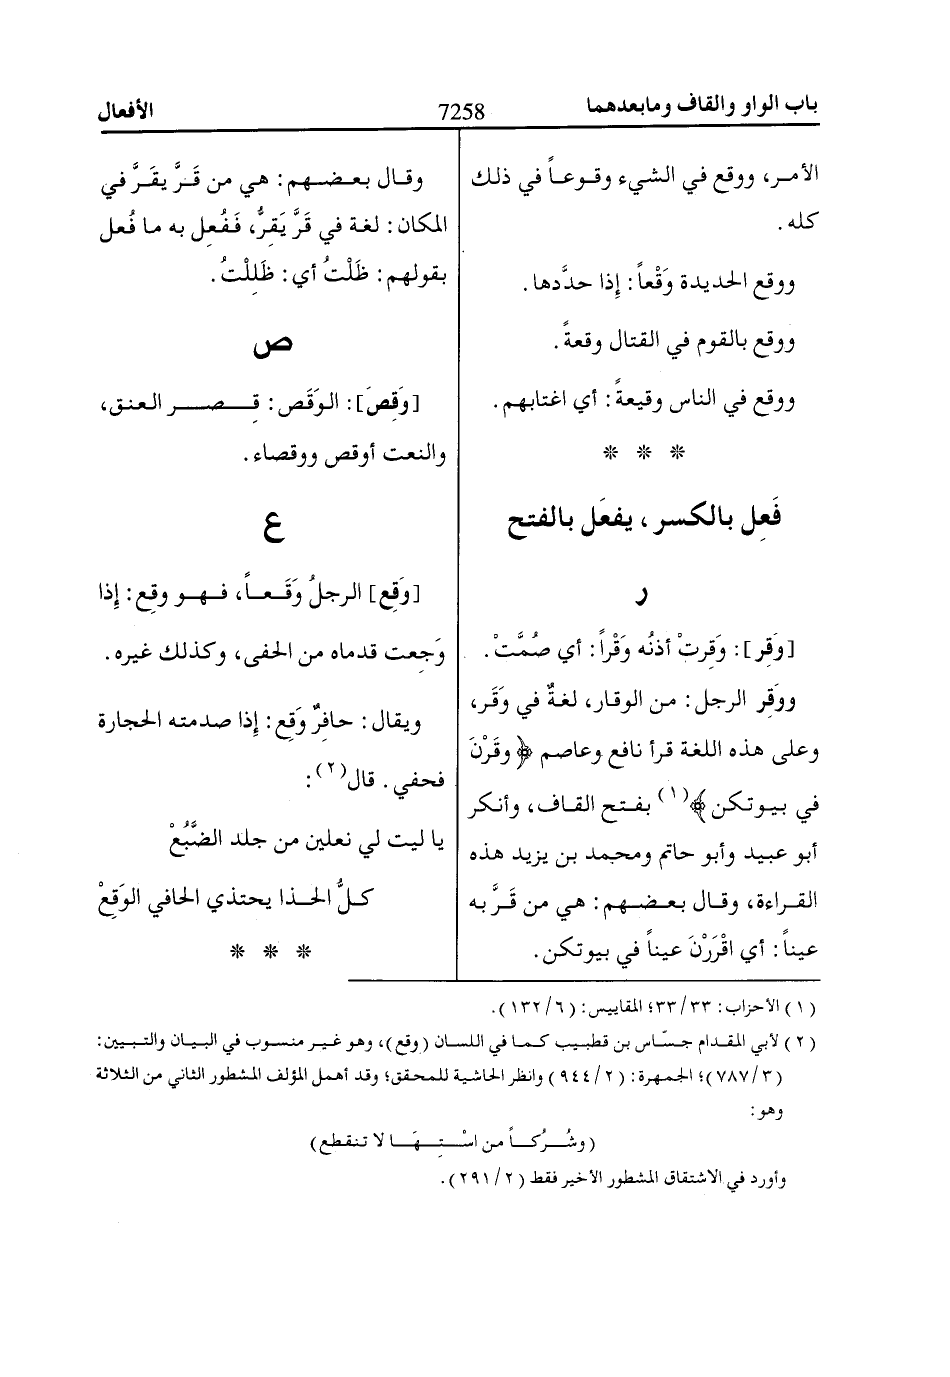 باب الواو والقاف ومابعدهما
7258
الأفعال
الأمـر، ووقع في الشيء وقـوعـاً في ذلك
كله .
ووقع الحديدة وَقْعاً : إذا حدَّدها .
ووقع بالقوم في القتال وقعةً .
ووقع في الناس وقيعةً : أي اغتابهم .
* * *
فَعِل بالكسر ، يفعَل بالفتح
ر
[وَقِر] : وَقِرتْ أذنُه وَقْراً : أي صُمَّتْ .
ووقِر الرجل : مـن الوقـار، لغـةٌ في وَقَر،
وعلى هذه اللغة قرأ نافع وعاصم ﴿ وقَرْنَ
في بيـوتكـن ﴾(١) بفـتح القاف، وأنكـر
أبو عبيد وأبو حاتم ومحمد بن يزيد هذه
القـراءة، وقـال بعـضـهـم : هي من قَـرَّ به
عيناً : أي اقْرَرْنَ عيناً في بيوتكن .
وقـال بعـضـهـم : هي من قَـرَّ يقَـرَّ في
المكان : لغة في قَرَّ يَقِرُّ، فَفُعِل به ما فُعل
بقولهم : ظَلْتُ أي : ظَلِلْتُ .
ص
[وَقِصَ] : الوَقَص : قِـصـر العـنق،
والنعت أوقص ووقصاء .
ع
[وَقِع] الرجلُ وَقَـعـاً، فـهـو وقِع : إذا
وَجِعت قدماه من الحفى، وكذلك غيره .
ويقال : حافِرٌ وَقِع : إذا صدمته الحجارة
فحفي . قال(٢) :
يا ليت لي نعلين من جلد الضَّبُعْ
كـلُّ الحـذا يحتذي الحافي الوَقِعْ
* * *
( ١ ) الأحزاب : ٣٣/٣٣؛ المقاييس : ( ٦/ ١٣٢ ) .
( ٢ ) لأبي المقـدام جـسّـاس بن قطيـب كـمـا في اللسـان ( وقع )، وهو غـيـر منسـوب في البيـان والتـبـيين :
( ٣/ ٧٨٧ )؛ الجمهرة : ( ٢/ ٩٤٤ ) وانظر الحاشية للمحقق؛ وقد أهمل المؤلف المشطور الثاني من الثلاثة
وهو :
( وشُـرُكـاً مـن اسْـتِـهَـا لا تـنـقطع )
وأورد في الاشتقاق المشطور الأخير فقط ( ٢/ ٢٩١ ) .